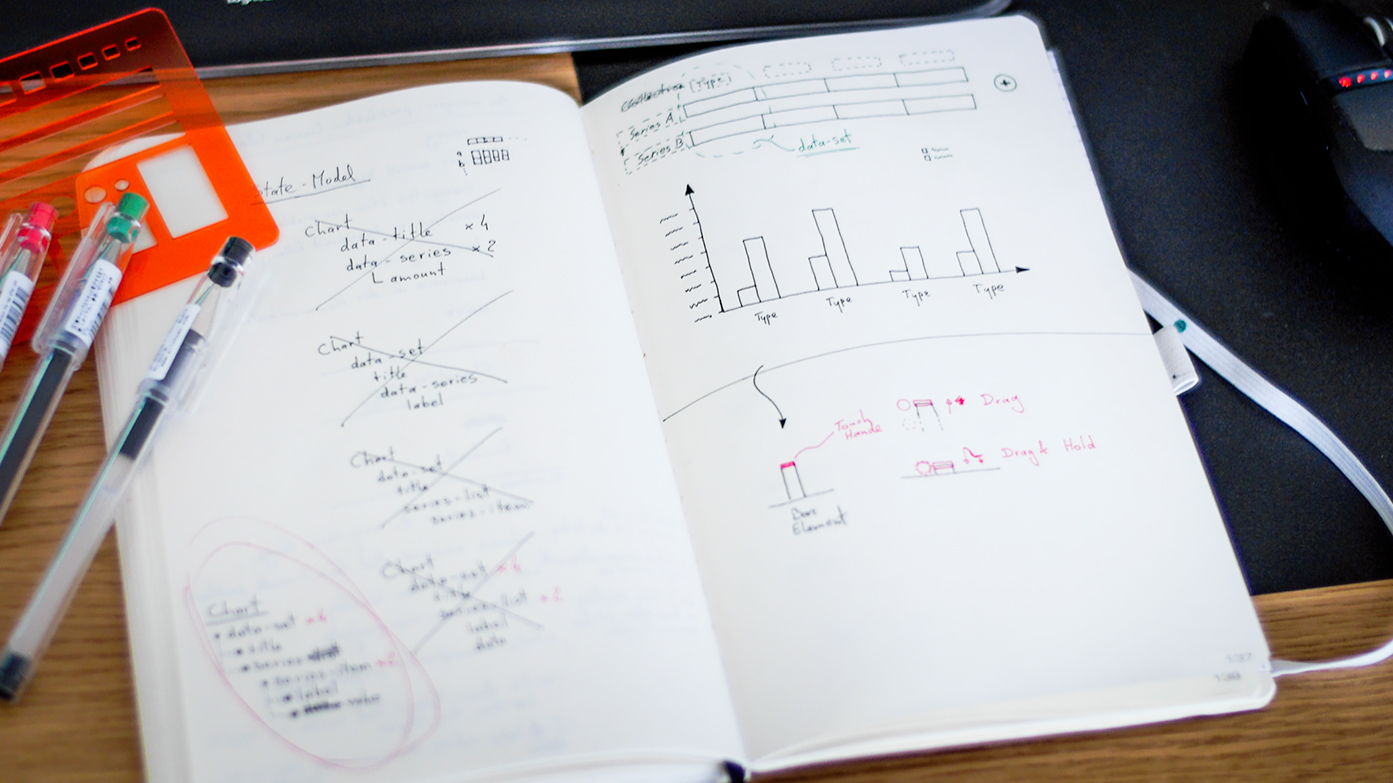 State-Model
Chart
data-title ×4
data-series ×2
amount
Chart
data-set
title
data-series
label
Chart
data-set
title
series-list
series-item
Chart
data-set ×4
title
series-list ×2
label
data
Chart
data-set ×4
title
series
series-item ×2
label
value
[Type]
Series A
Series B
data-set
a
b
Type
Type
Type
Type
Touch
Hande
Drag
Drag & Hold
Bar
Element
137
138